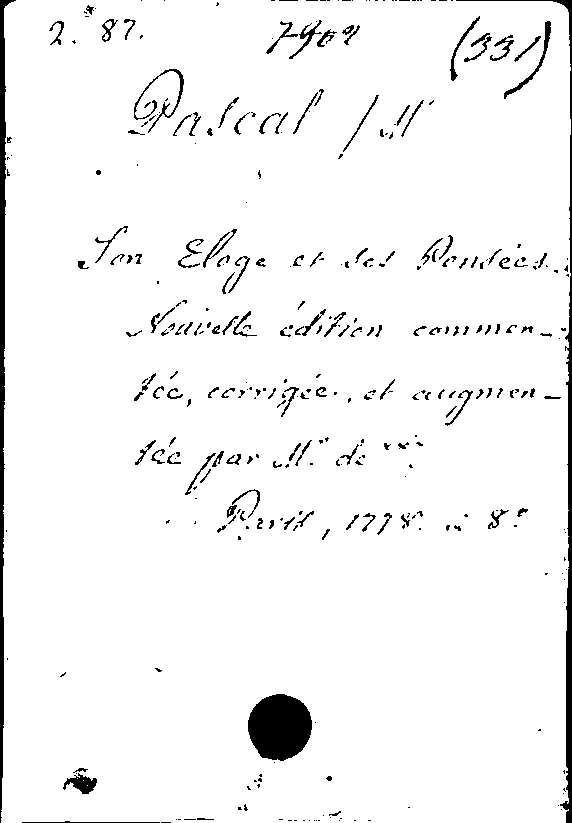 2. 87. 7902 (331)
Pascal / Mr
Son Eloge et ses Pensées.
Nouvelle édition commen-
tée, corrigée, et augmen-
tée par Mr. de ***.
Paris, 1778. in 8°